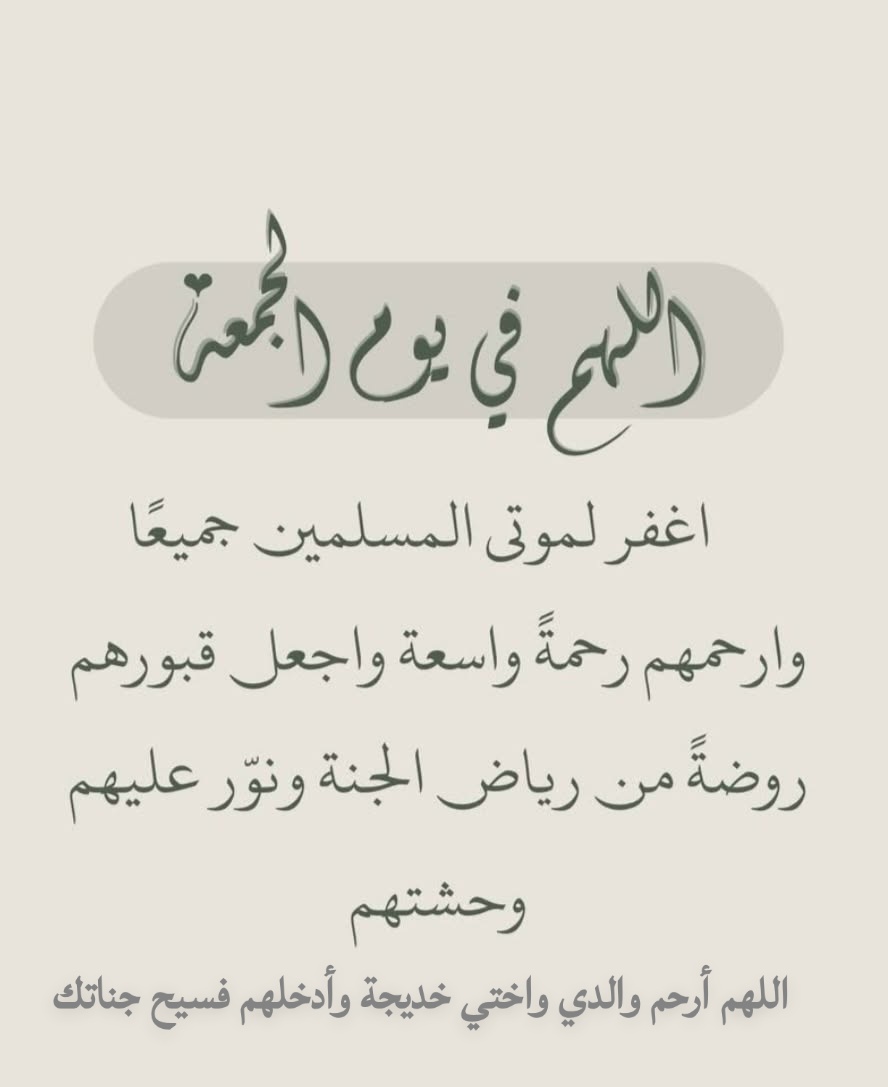 اللهم في يوم الجمعة
اغفر لموتى المسلمين جميعًا
وارحمهم رحمةً واسعة واجعل قبورهم
روضةً من رياض الجنة ونوّر عليهم
وحشتهم
اللهم أرحم والدي واختي خديجة وأدخلهم فسيح جناتك